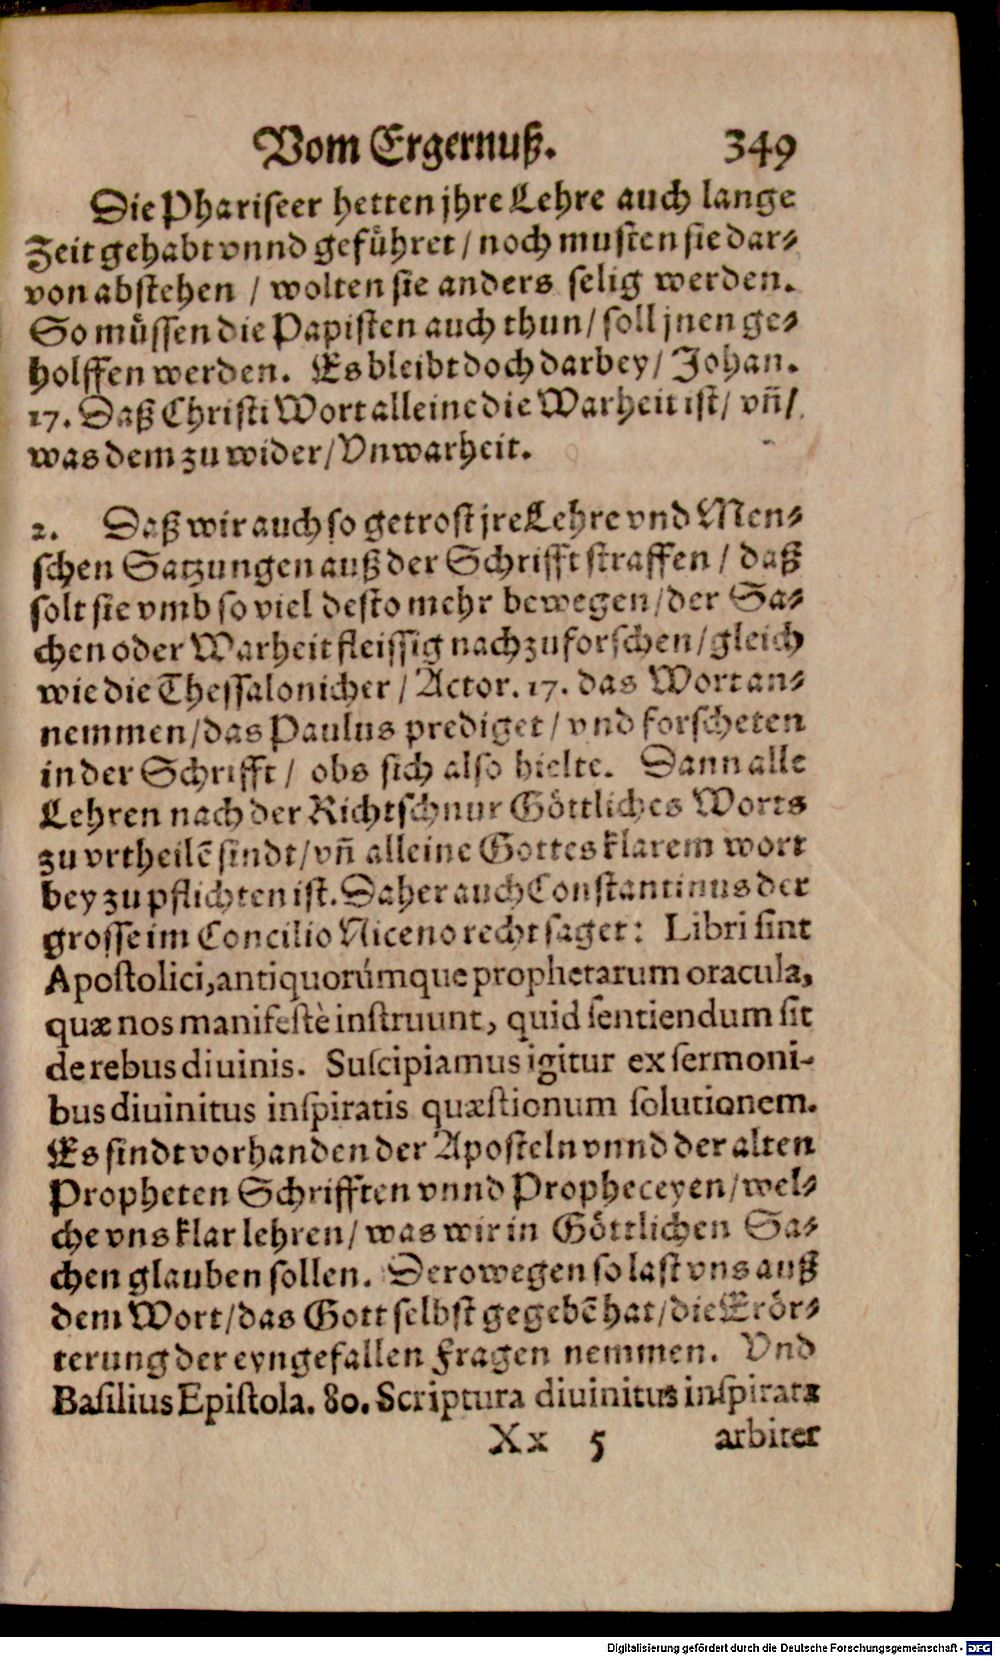 Vom Ergernuß. 349
Die Phariseer hetten jhre Lehre auch lange
Zeit gehabt vnnd geführet / noch musten sie dar-
von abstehen / wolten sie anders selig werden.
So müssen die Papisten auch thun / soll jnen ge-
holffen werden. Es bleibt doch darbey / Johan.
17. Daß Christi Wort alleine die Warheit ist / vñ /
was dem zu wider / Vnwarheit.
2. Daß wir auch so getrost jre Lehre vnd Men-
schen Satzungen auß der Schrifft straffen / daß
solt sie vmb so viel desto mehr bewegen / der Sa-
chen oder Warheit fleissig nachzuforschen / gleich
wie die Thessalonicher / Actor. 17. das Wort an-
nemmen / das Paulus prediget / vnd forscheten
in der Schrifft / obs sich also hielte. Dann alle
Lehren nach der Richtschnur Göttliches Worts
zu vrtheilẽ sindt / vñ alleine Gottes klarem wort
bey zu pflichten ist. Daher auch Constantinus der
grosse im Concilio Niceno recht saget: Libri sint
Apostolici, antiquorúmque prophetarum oracula,
quæ nos manifestè instruunt, quid sentiendum sit
de rebus diuinis. Suscipiamus igitur ex sermoni-
bus diuinitus inspiratis quæstionum solutionem.
Es sindt vorhanden der Aposteln vnnd der alten
Propheten Schrifften vnnd Propheceyen / wel-
che vns klar lehren / was wir in Göttlichen Sa-
chen glauben sollen. Derowegen so last vns auß
dem Wort / das Gott selbst gegebẽ hat / die Erör-
terung der eyngefallen Fragen nemmen. Vnd
Basilius Epistola. 80. Scriptura diuinitus inspirata
Xx 5 arbiter
Digitalisierung gefördert durch die Deutsche Forschungsgemeinschaft - DFG